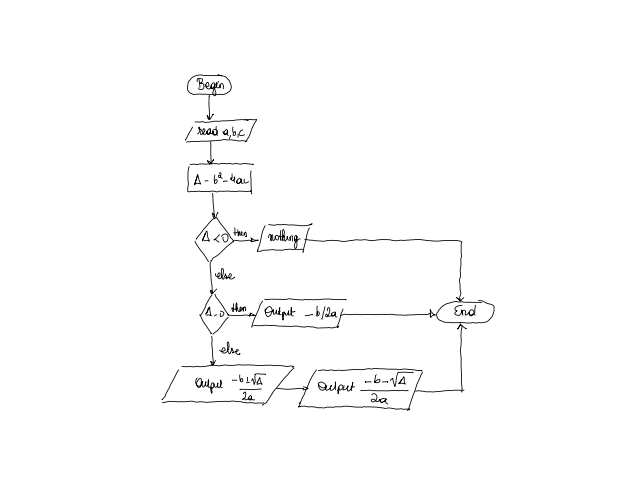 Begin
read a,b,c
Δ - b² - 4ac
Δ < 0
then
nothing
else
Δ - 0
then
Output - b/2a
End
else
Output -b±√Δ
2a
Output -b-√Δ
2a